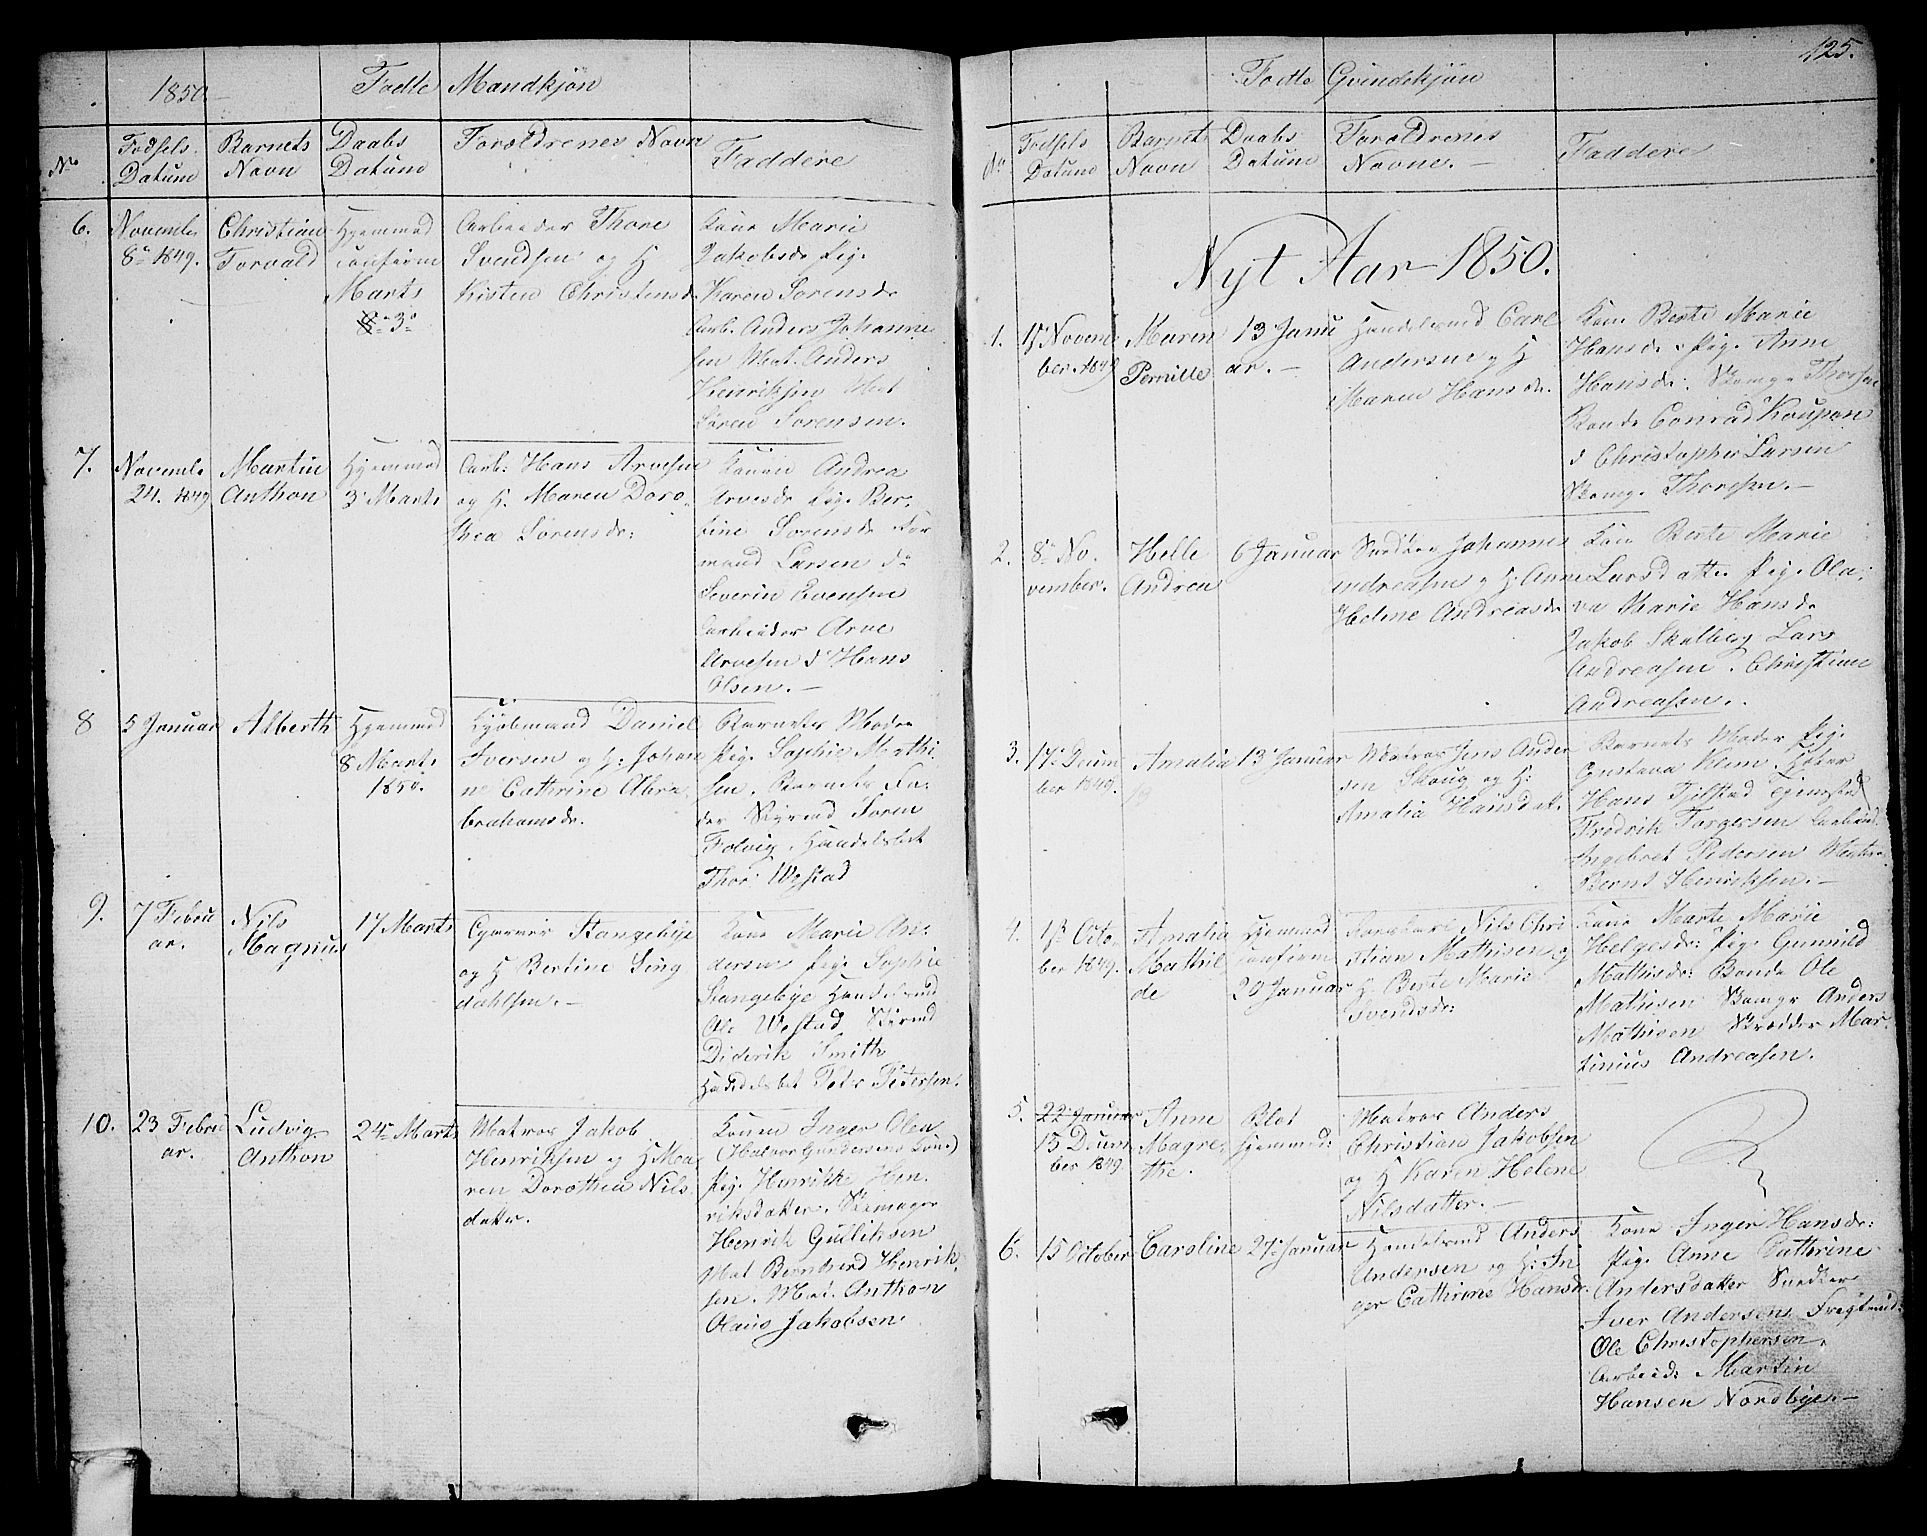 1850.
Fødte Mandkjøn
No
Fødsels Datum
Barnets Navn
Daabs Datum
Forældrenes Navn
Faddere
6.
Novembe
8de 1849.
Christian
Torvald
Hjemmed
confirm
Marts
3de
Arbeider Thore
Svendsen og H
Kisten Christensd.
Kone Marie
Jakobsd. Pig.
Karen Sørensd.
Arb. Anders Johanne
sen Mat. Anders
Henriksen Mat
Søren Sørensen.
7.
Novembe
24. 1849
Martin
Anthon
Hjemmed
3 Marts
Arb: Hans Arvesen
og H. Maren Doro
thea Sørensd:
Konen Andrea
Arvesd. Pige Ber-
tine Sørensd.
mand Larsen do
Severin Evensen
Arbeider Arve
Arvesen & Hans
Olsen.-
8
5 Januar
Alberth
Hjemmed
8 Marts
1850.
Kjøbmand Daniel
Iversen og H: Johan
ne Cathrine Abra
brahamsdr.
Barnets Moder
Pig. Sophie Mathi
sen. Barnets Fa-
der
Søren
Folvig. Handelsbet
Thor Wystad
9.
7 Febru
ar.
Nils
Magnus
17 Marts
Gjørtler Stangebye
og H Bertine Ling
dahlsen.-
Kone Marie An-
dersen Pige Sophie
Stangebye Handelsmd
Ole Westad
Diderik Smith
Handelsbet Peter Petersen.
10.
23 Febru
ar.
Ludvig
Anthon
24de Marts
Matros Jakob
Henriksen og H Ma
ren Dorothea Nils
datter.
Konen Inger Olea
(Halvor Gundersens Kone)
Pig. Henrikke Hen-
riksdatter. Skomager
Henrik Gullihsen
Mat Berntserd Henrik-
sen. Mat. Anthon
Olaus Jakobsen
125.
Fødte Qvindekjøn
No
Fødsels Datum
Barnets Navn
Daabs Datum
Forældrenes Navne.-
Faddere
Nyt Aar 1850.
1.
17 Novem
ber. 1849
Maren
Pernille
13 Janu
ar.-
Handelsmd Carl
Andersen og H
Maren Hansdr.
Kone Berte Marie
Hansd. Pig. Anne
Hansdr. Skomgr Thorsen
Bonde Conrad Koupan
& Christopher Larsen
Skomgr Thorsen.-
2.
8de No-
vember.
Helle
Andrea
6 Januar
Snedker Johannes
Andreasen og H. Anne
Helene Andreasdr
Kone Berte Marie
Larsdatter Pige Ola-
va Marie Hansdr
Jakob Skolberg Lars
Andreasen. Christian
Andreasen.
3.
17de Decem
ber 1849.
Amalia
13 Januar
Matros Jens Ander
sen Skoug og H:
Amalia Hansdatt.
Barnets Moder Pige
Gustava Klem
Hans Tjelstad
Fredrik Torgersen
Ingebret Pedersen
Bernt Henriksen.-
4.
17 Octo-
ber 1849.
Amalia
Mathil
de
Hjemmed
confirm
20 Januar
Nils Chri
stian Mathisen og
H. Berte Marie
Svendsdr:
Kone Marte Marie
Helgesdr: Pige Gunnild
Mathisdr: Bonde Ole
Mathisen Skomgr Anders
Mathisen Skrædder Mar-
tinius Andreasen.
5.
22 Januar
15 Decem
ber 1849
Anne
Magre-
the.
Blot
hjemmed:
Matros Anders
Christian Jakobsen
og H Karen Helene
Nilsdatter.-
6.
15 October
Caroline
27de Januar
Handelsmd Anders
Andersen og H: In
ger Cathrine Hansdr.
Kone Inger Hansdr:
Pige Anne Cathrine
Andersdatter Snedker
Iver Andersen Fragtmd:
Ole Christophersen.
Arbeid: Martin
Hansen Nordbyen-